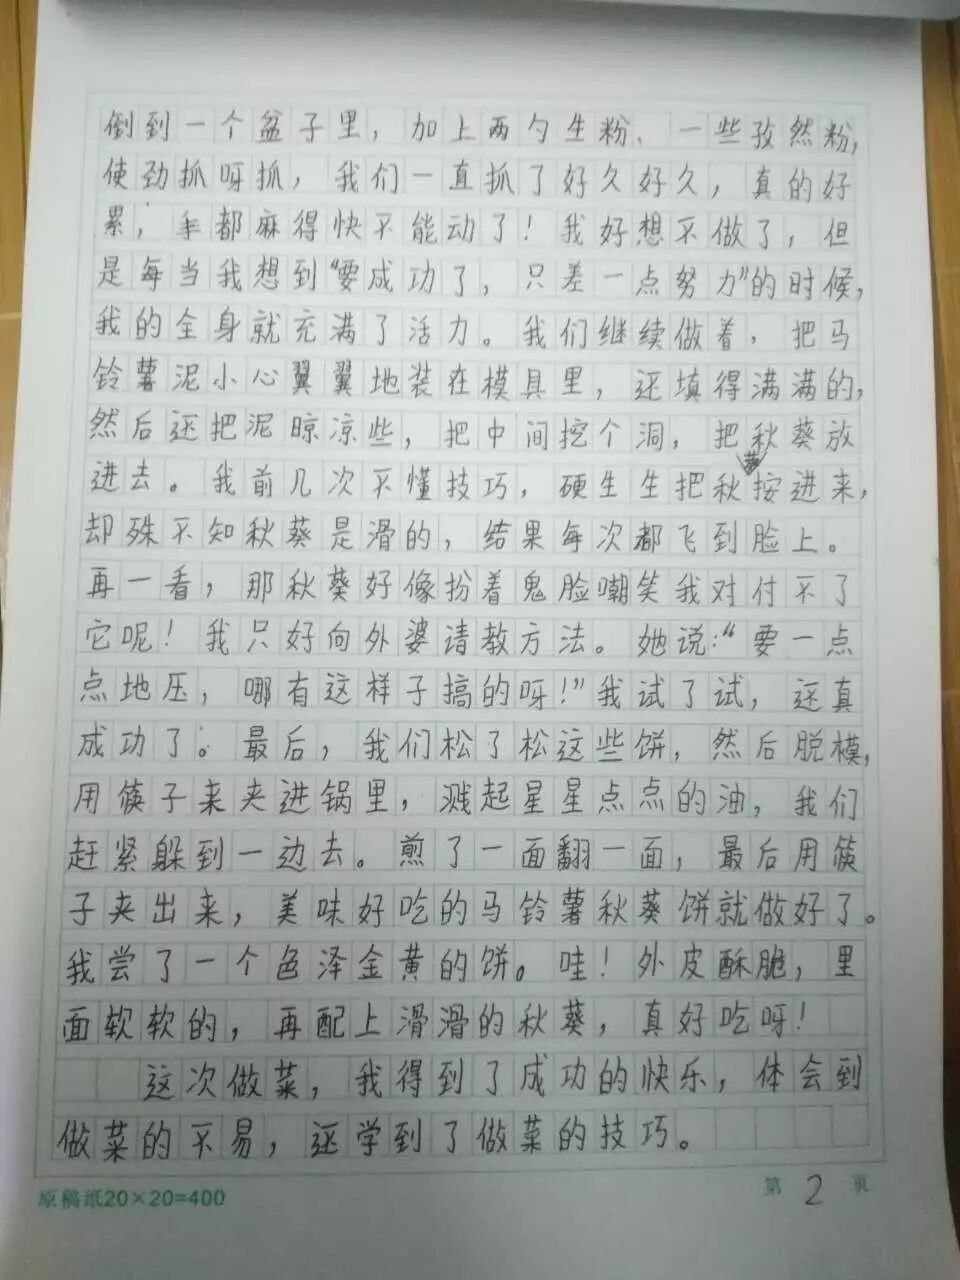 倒到一个盆子里，加上两勺生粉、一些孜然粉，
使劲抓呀抓，我们一直抓了好久好久，真的好
累，手都麻得快不能动了！我好想不做了，但
是每当我想到“要成功了，只差一点努力”的时候，
我的全身就充满了活力。我们继续做着，把马
铃薯泥小心翼翼地装在模具里，还填得满满的，
然后还把泥晾凉些，把中间挖个洞，把秋葵放
进去。我前几次不懂技巧，硬生生把秋葵按进来，
却殊不知秋葵是滑的，结果每次都飞到脸上。
再一看，那秋葵好像扮着鬼脸嘲笑我对付不了
它呢！我只好向外婆请教方法。她说：“要一点
点地压，哪有这样子搞的呀！”我试了试，还真
成功了。最后，我们松了松这些饼，然后脱模，
用筷子来夹进锅里，溅起星星点点的油，我们
赶紧躲到一边去。煎了一面翻一面，最后用筷
子夹出来，美味好吃的马铃薯秋葵饼就做好了。
我尝了一个色泽金黄的饼。哇！外皮酥脆，里
面软软的，再配上滑滑的秋葵，真好吃呀！
这次做菜，我得到了成功的快乐，体会到
做菜的不易，还学到了做菜的技巧。
原稿纸20×20=400
第 2 页